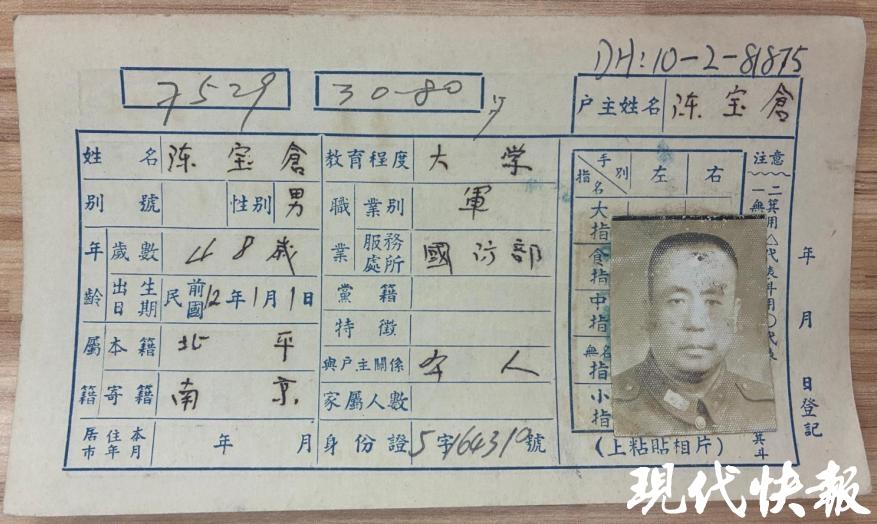 DH:10-2-81875
7529 30-80
戶主姓名 陈宝倉
姓名 陈宝倉 教育程度 大学
別號 性別 男 職業 業別 軍
年齡 歲數 48歲 服務處所 國防部
出生日期 民國前12年1月1日 黨籍
特徵
屬籍 本籍 北平 與戶主關係 本人
寄籍 南京 家屬人數
居住本市年月 年 月 身份證 5字164319號
指名 手別 左 右
大指
食指
中指
無名指
小指
(上粘貼相片)
注意
年 月 日登記
現代快報